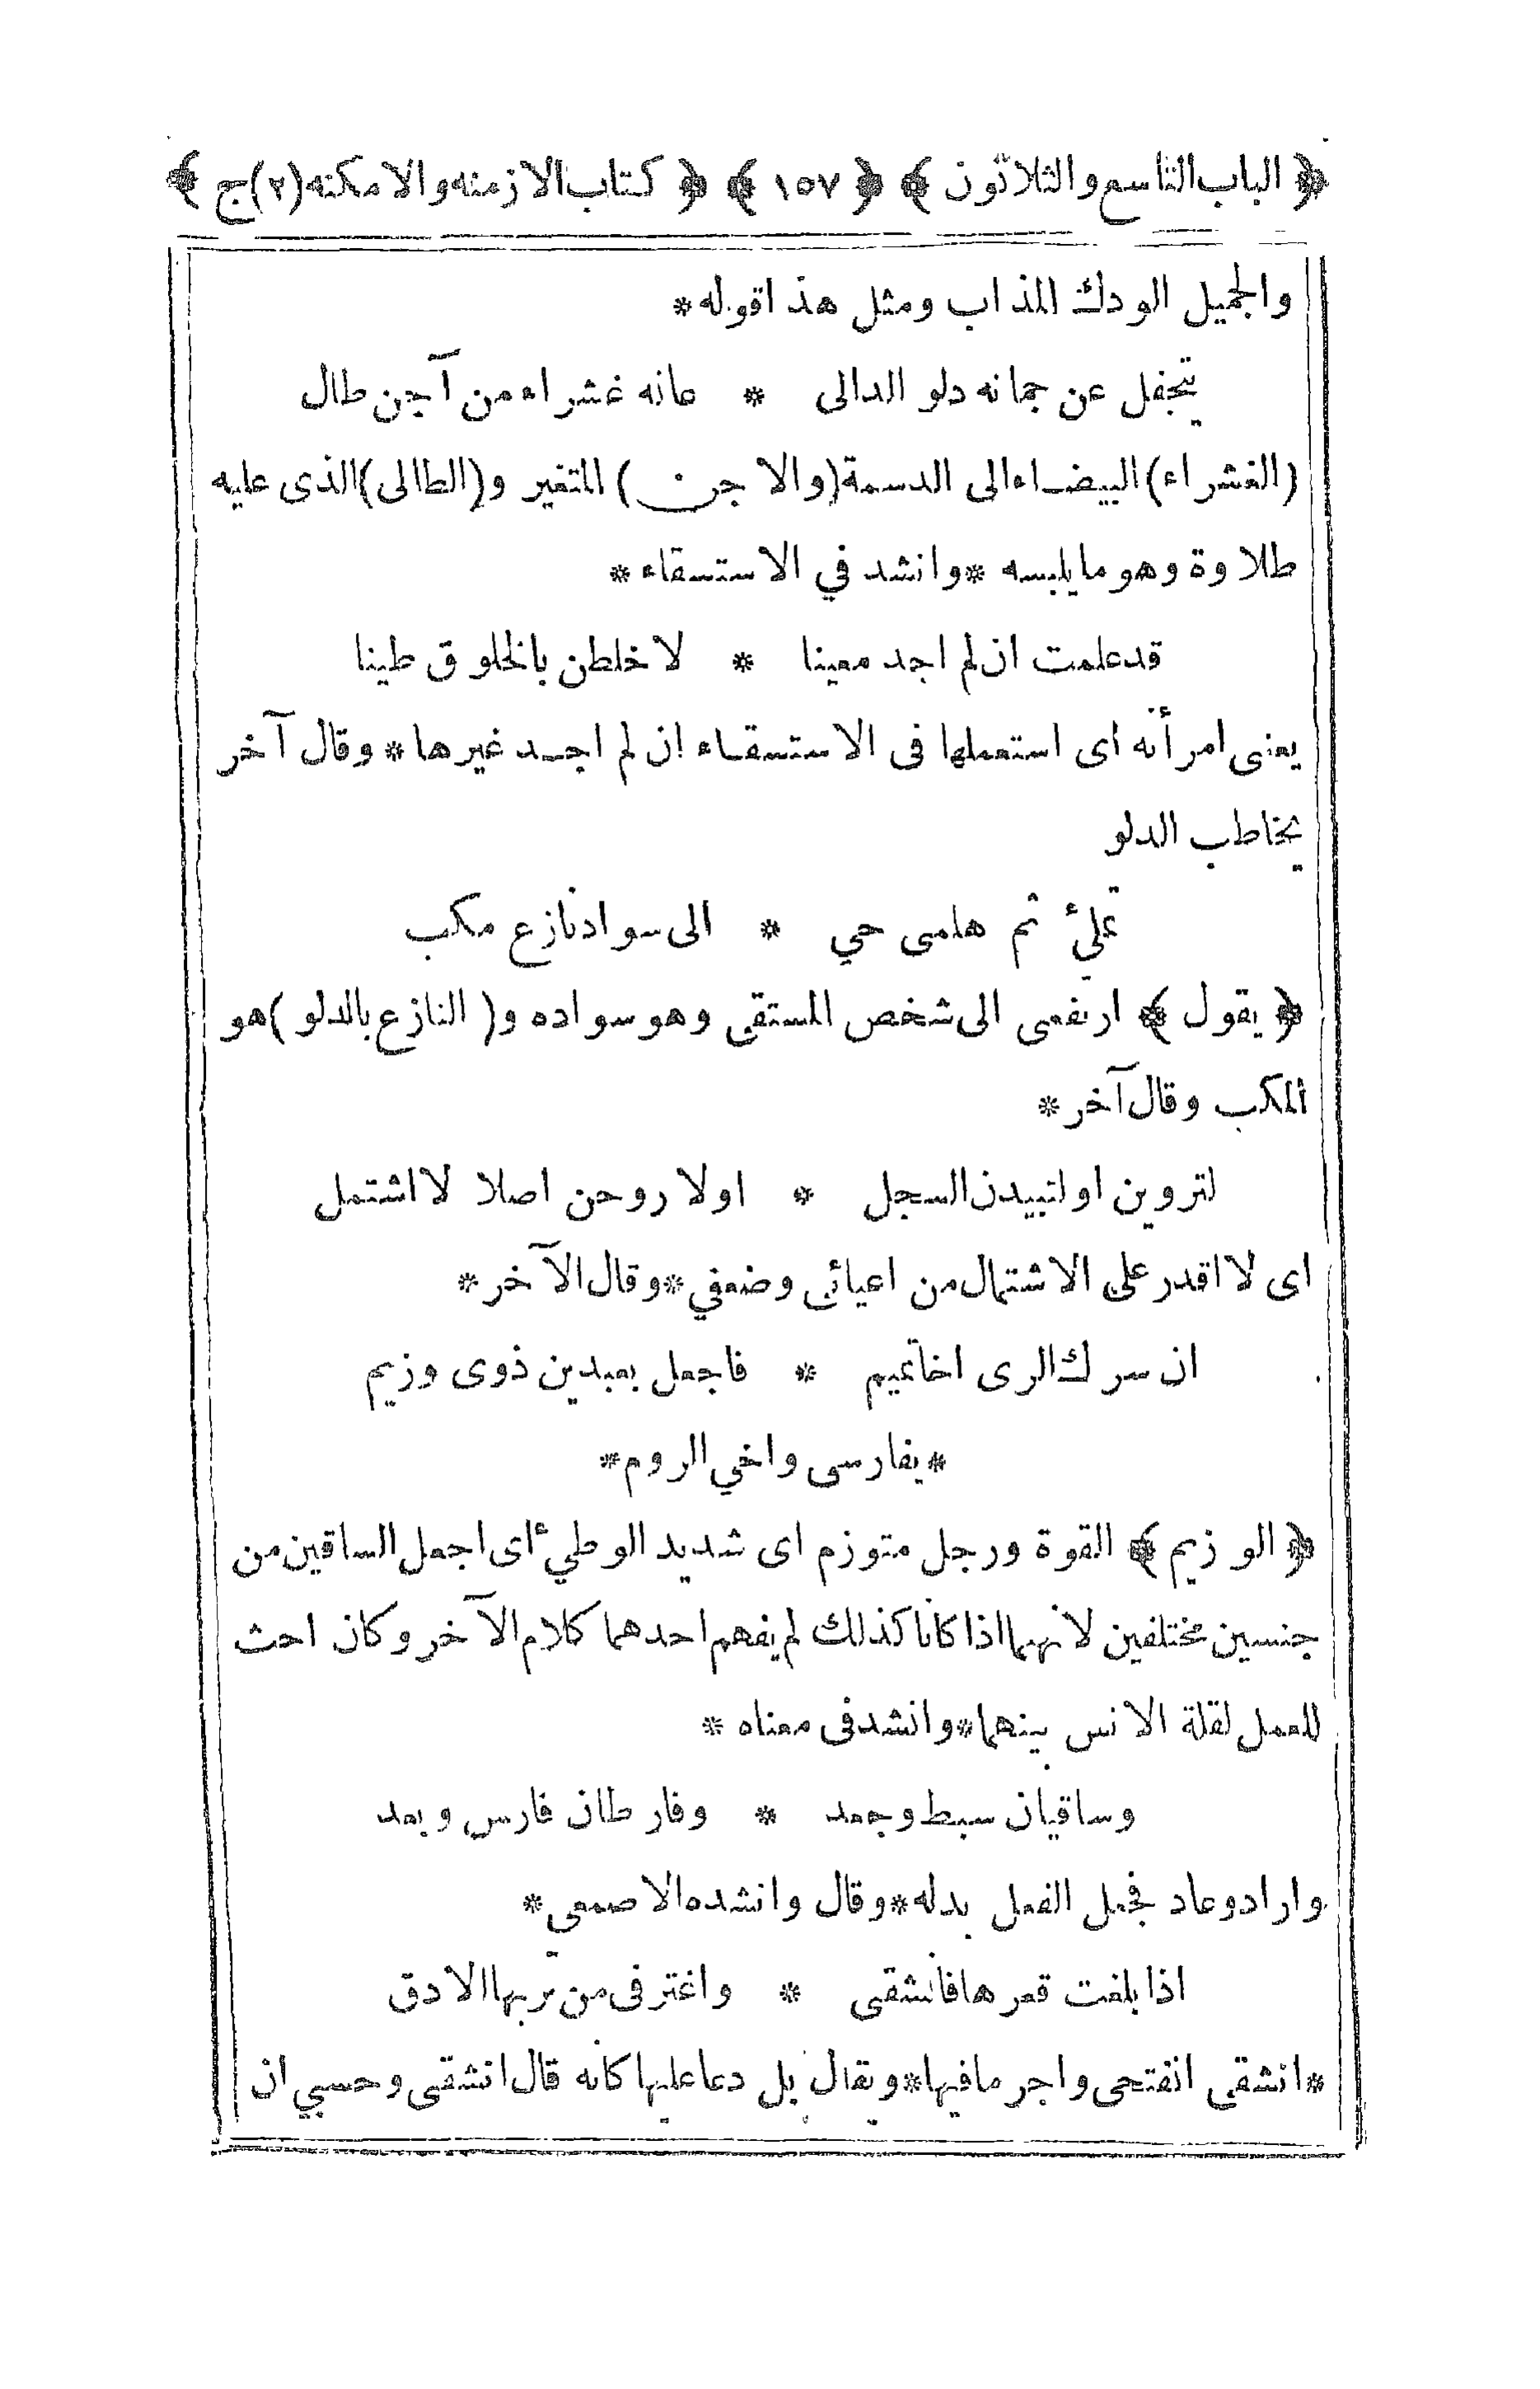 ﴿ الباب التاسع والثلاثون ﴾ ﴿ ١٥٧ ﴾ ﴿ كتاب الازمنه والامكنه (٢) ج ﴾
والجميل الودك المذاب ومثل هذا قوله *
يتجفل عن جمانه دلو الدالى * عانه غثراء من آجن طال
(الغثراء) البيضاء الى الدسمة (والاجن) المتغير و(الطالى) الذى عليه
طلاوة وهو ما يلبسه * وانشد في الاستسقاء *
قد علمت ان لم اجد معينا * لاخلطن بالخلوق طينا
يعنى امرأته اى استعملها فى الاستسقاء ان لم اجد غيرها * وقال آخر
يخاطب الدلو
تملئ ثم هلمى حي * الى سواد نازع مكب
﴿ يقول ﴾ ارتفعى الى شخص المستقى وهو سواده و( النازع بالدلو ) هو
المكب وقال آخر *
لتروين او لتبيدن السجل * اولا روحن اصلا لا اشتمل
اى لا اقدر على الاشتمال من اعيائى وضعفي * وقال الآخر *
ان سرك الرى اخا تميم * فاجعل بعبدين ذوى وزيم
* بفارسى واخي الروم *
﴿ الوزيم ﴾ القوة ورجل متوزم اى شديد الوطئ اى اجعل الساقين من
جنسين مختلفين لانهما اذا كانا كذلك لم يفهم احدهما كلام الآخر وكان احث
للعمل لقلة الانس بينهما * وانشد فى معناه *
وساقيان سبط وجعد * وفارطان فارس وبعد
واراد وعاد فجعل الفعل بدله * وقال وانشده الاصمعى *
اذا بلغت قعرها فانشقى * واغترفى من تربها الادق
* انشقى انفتحى واجر مافيها * ويقال بل دعا عليها كانه قال انشقى وحسبي ان